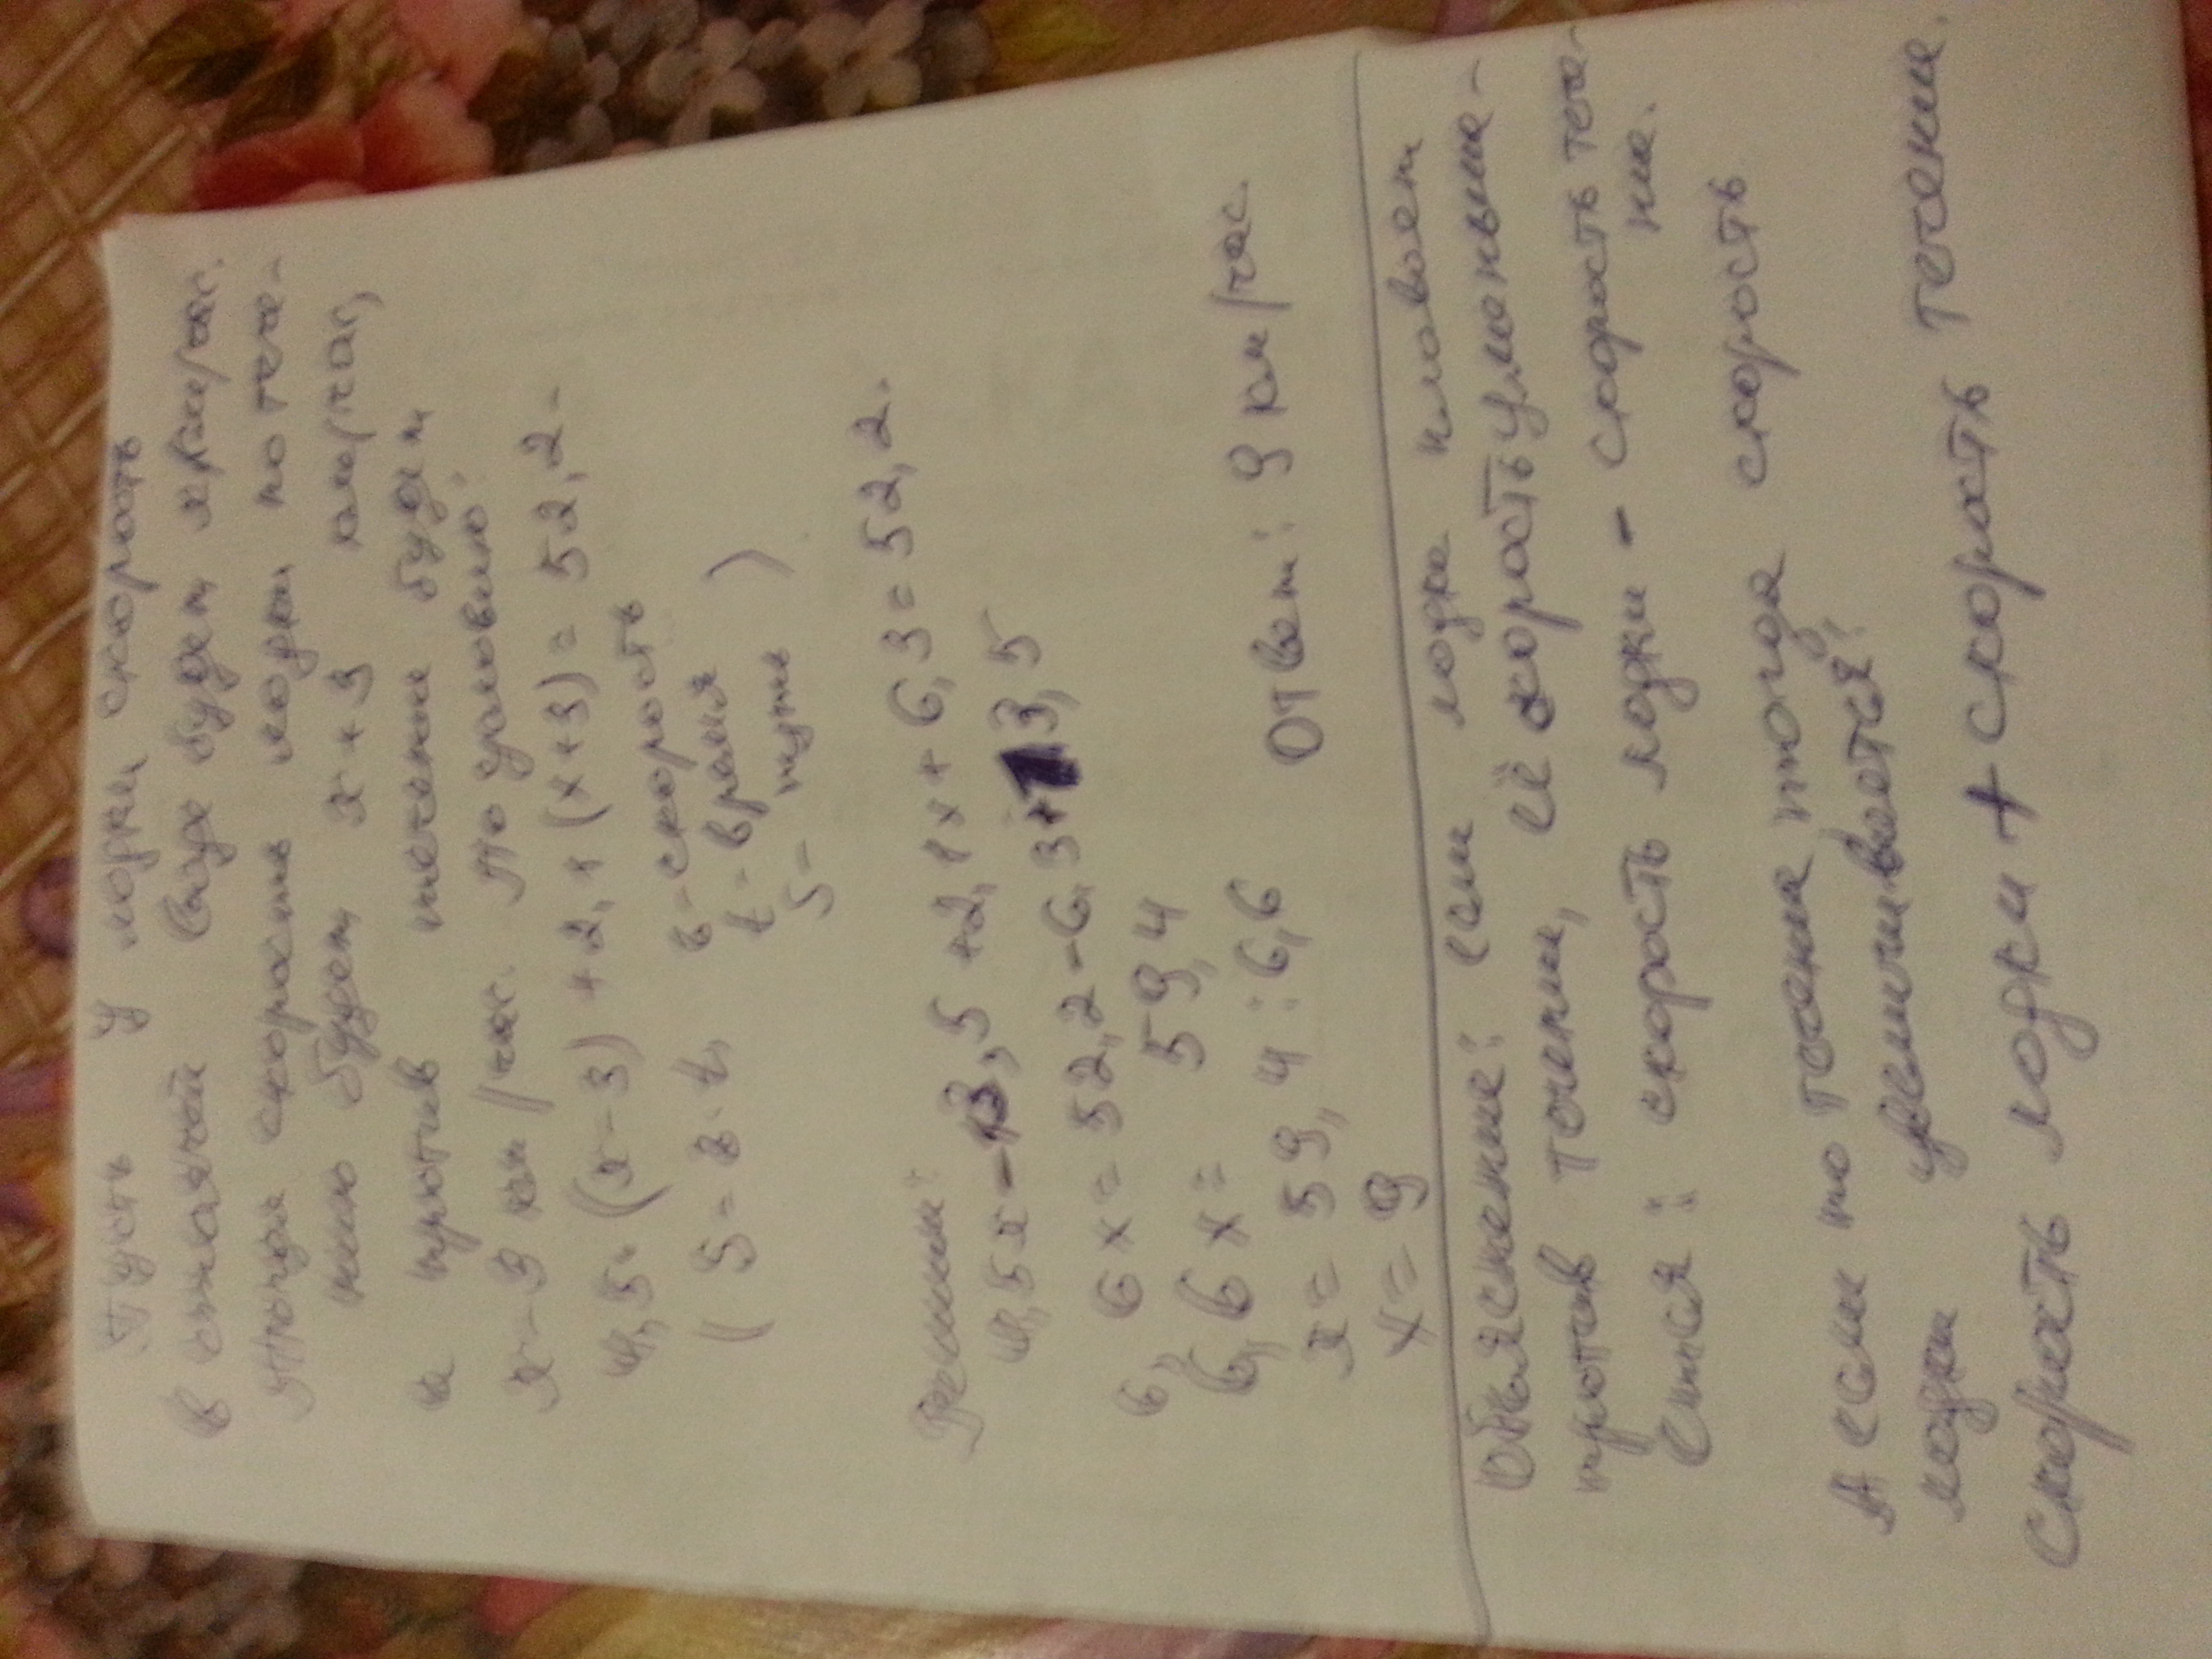 Пусть у лодки скорость
в стоячей воде будет х км/час.
тогда скорость лодки по тече-
нию будет х+3 км/час,
а против течения будет
х-3 км/час. По условию:
4,5·(х-3)+2,1(х+3)=52,2-
(S=в·t, в-скорость
t-время
S- пути )
Решим:
4,5х-13,5+2,1х+6,3=52,2.
6,6х=52,2-6,3+13,5
6,6х= 59,4
х=59,4:6,6
х=9
Ответ: 9 км/час.
Объяснение: если лодка плывет
против течени, её скорость уменьше-
ится: скорость лодки - скорость тече-
ние.
А если по течени тогда скорость
лодки увеличивается:
Скорость лодки + скорость течени.